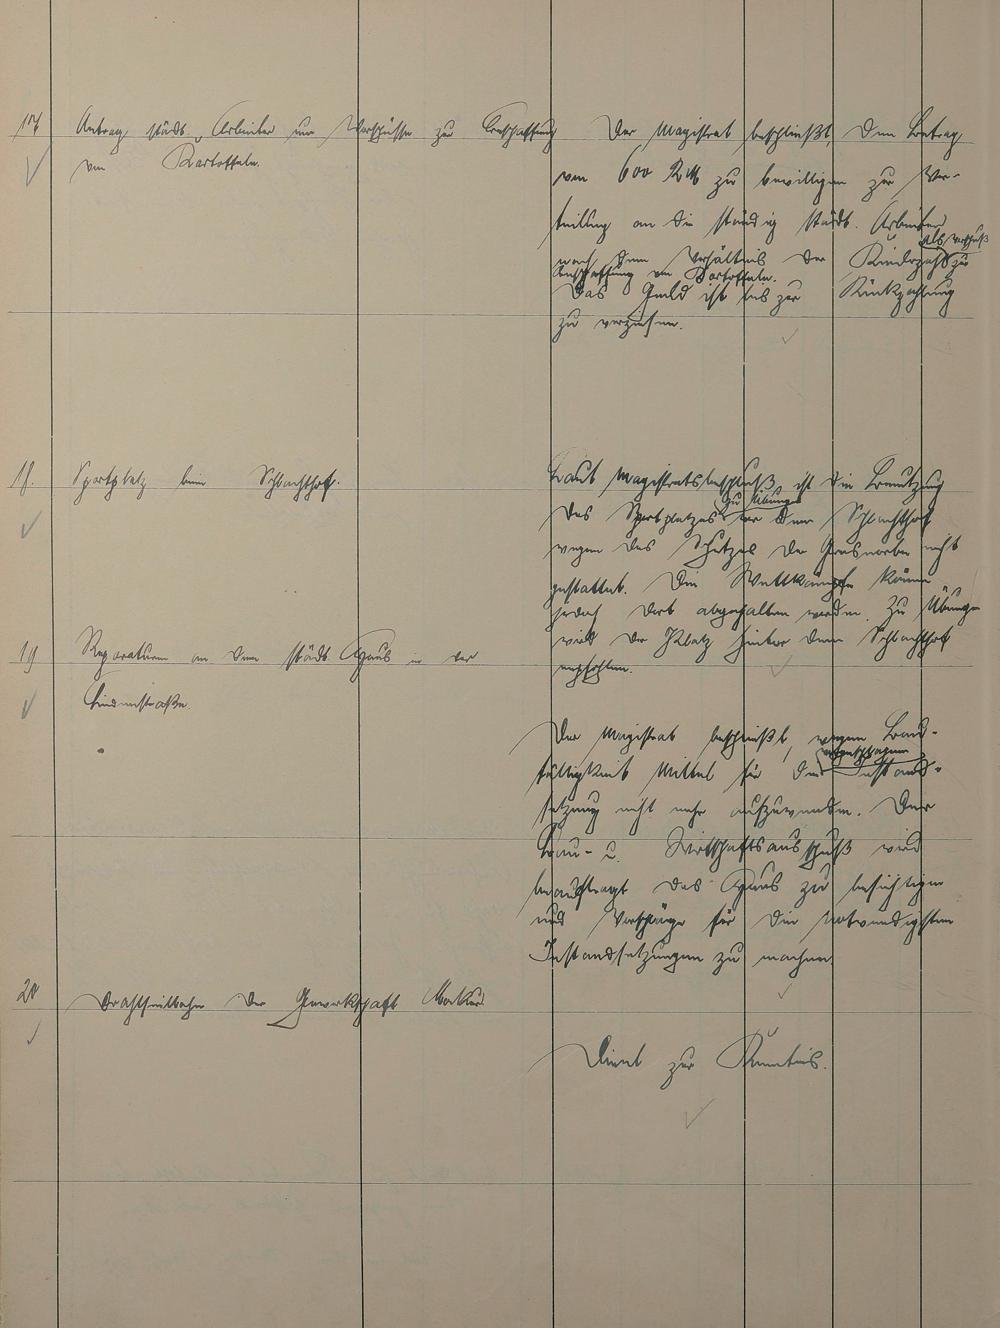 17
Antrag städt. Arbeiter um Vorschüsse zur Beschaffung
von Kartoffeln.
Der Magistrat beschließt, den Betrag
von 600 RM zu bewilligen zur Ver-
teilung an die ständig städt. Arbeiter
als Vorschuß
nach dem Verhältnis der Kinderzahl zu
Anschaffung von Kartoffeln.
Das Geld ist bis zur Rückzahlung
zu verzinsen.
18.
Sportplatz beim Schlachthof.
Laut Magistratsbeschluß ist die Benutzung
zu Übungen
des Sportplatzes vor dem Schlachthof
wegen des Schutzes der Grasnarbe nicht
gestattet. Die Wettkämpfe können
jedoch dort abgehalten werden. Zu Übungen
wird der Platz hinter dem Schlachthof
empfohlen.
19
Reparaturen an dem städt. Haus in der
Lindenstraße.
Der Magistrat beschließt, wegen Bau-
vorgeschlagenen
fälligkeit Mittel für die Instand-
setzung nicht mehr aufzuwenden. Der
Bau- u. Wirtschaftsausschuß wird
beauftragt das Haus zu besichtigen
und Vorschläge für die notwendigsten
Instandsetzungen zu machen
20
Drahtseilbahn der Gewerkschaft Merkur.
Dient zur Kenntnis.